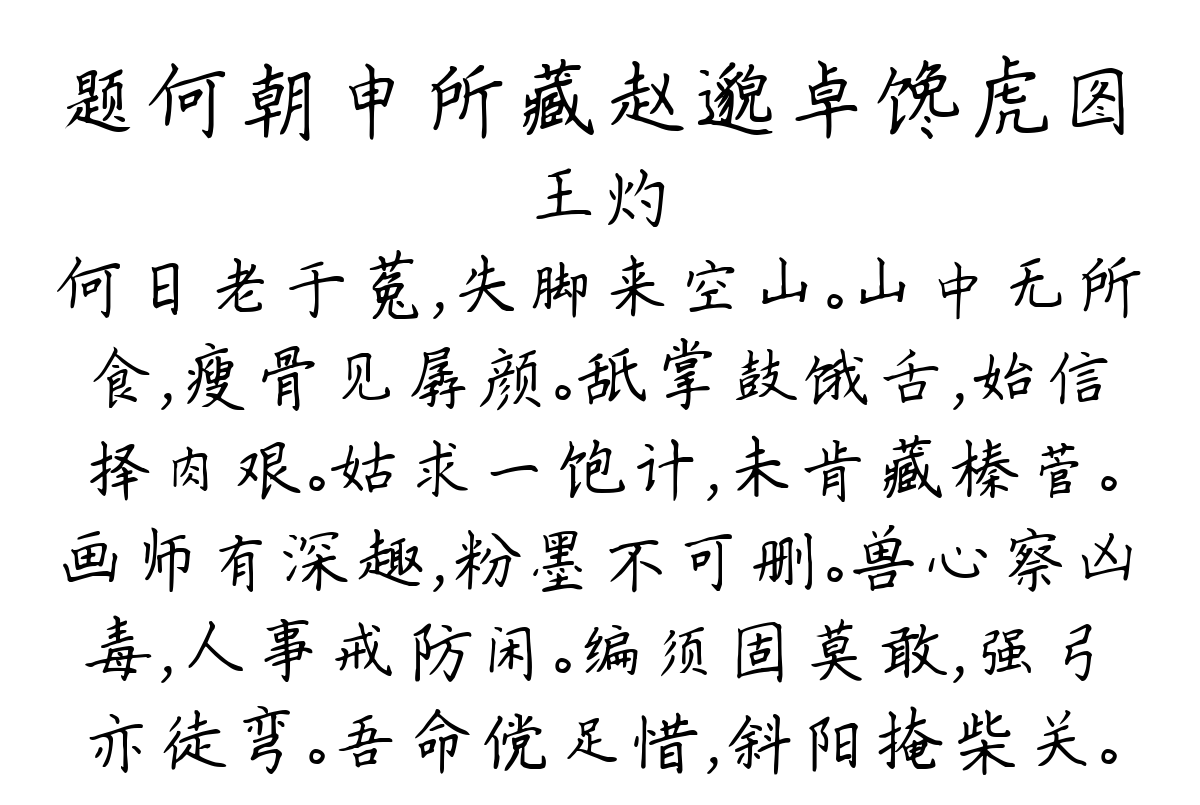 题何朝申所藏赵邈卓馋虎图
王灼
何日老于菟,失脚来空山。山中无所
食,瘦骨见孱颜。舐掌鼓饿舌,始信
择肉艰。姑求一饱计,未肯藏榛菅。
画师有深趣,粉墨不可删。兽心察凶
毒,人事戒防闲。编须固莫敢,强弓
亦徒弯。吾命傥足惜,斜阳掩柴关。